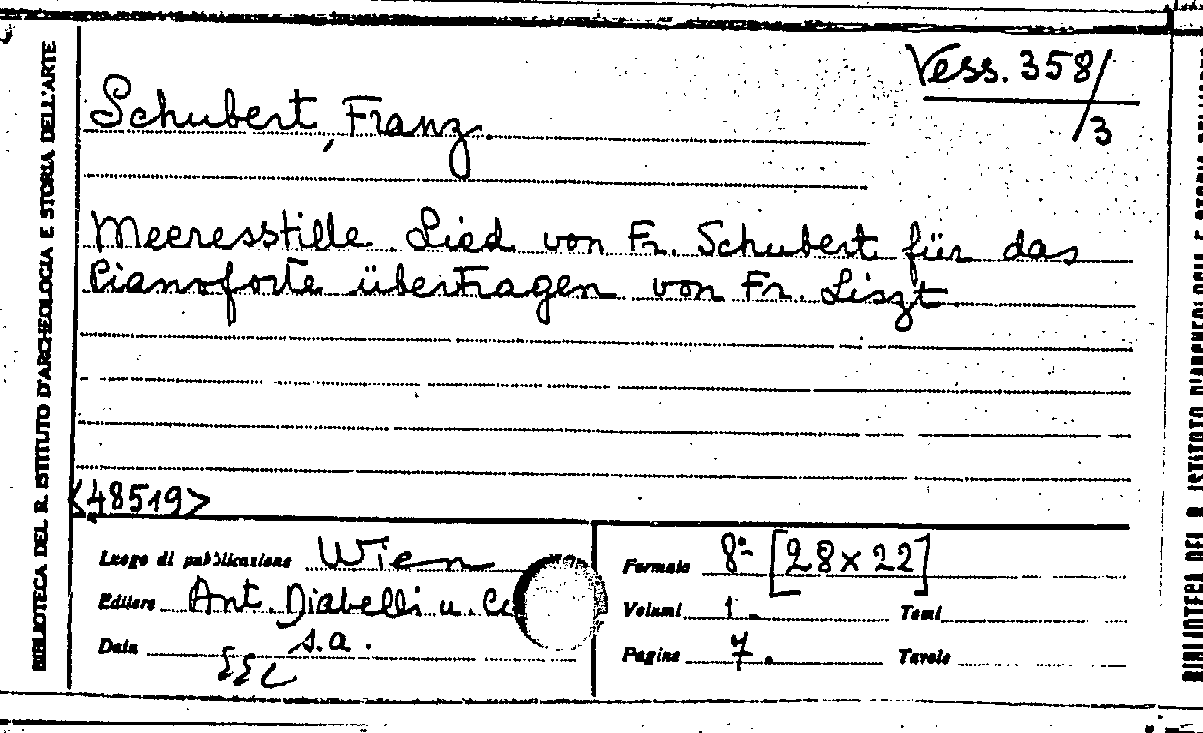 Vess. 358/3
Schubert, Franz
Meeresstille. Lied von Fr. Schubert für das
Pianoforte übertragen von Fr. Liszt.
<48519>
Luogo di pubblicazione Wien
Editore Ant. Diabelli u. Co
Data s.a.
Formato 8º [28x22]
Volumi 1. Tomi
Pagine 7. Tavole
BIBLIOTECA DEL R. ISTITUTO D'ARCHEOLOGIA E STORIA DELL'ARTE